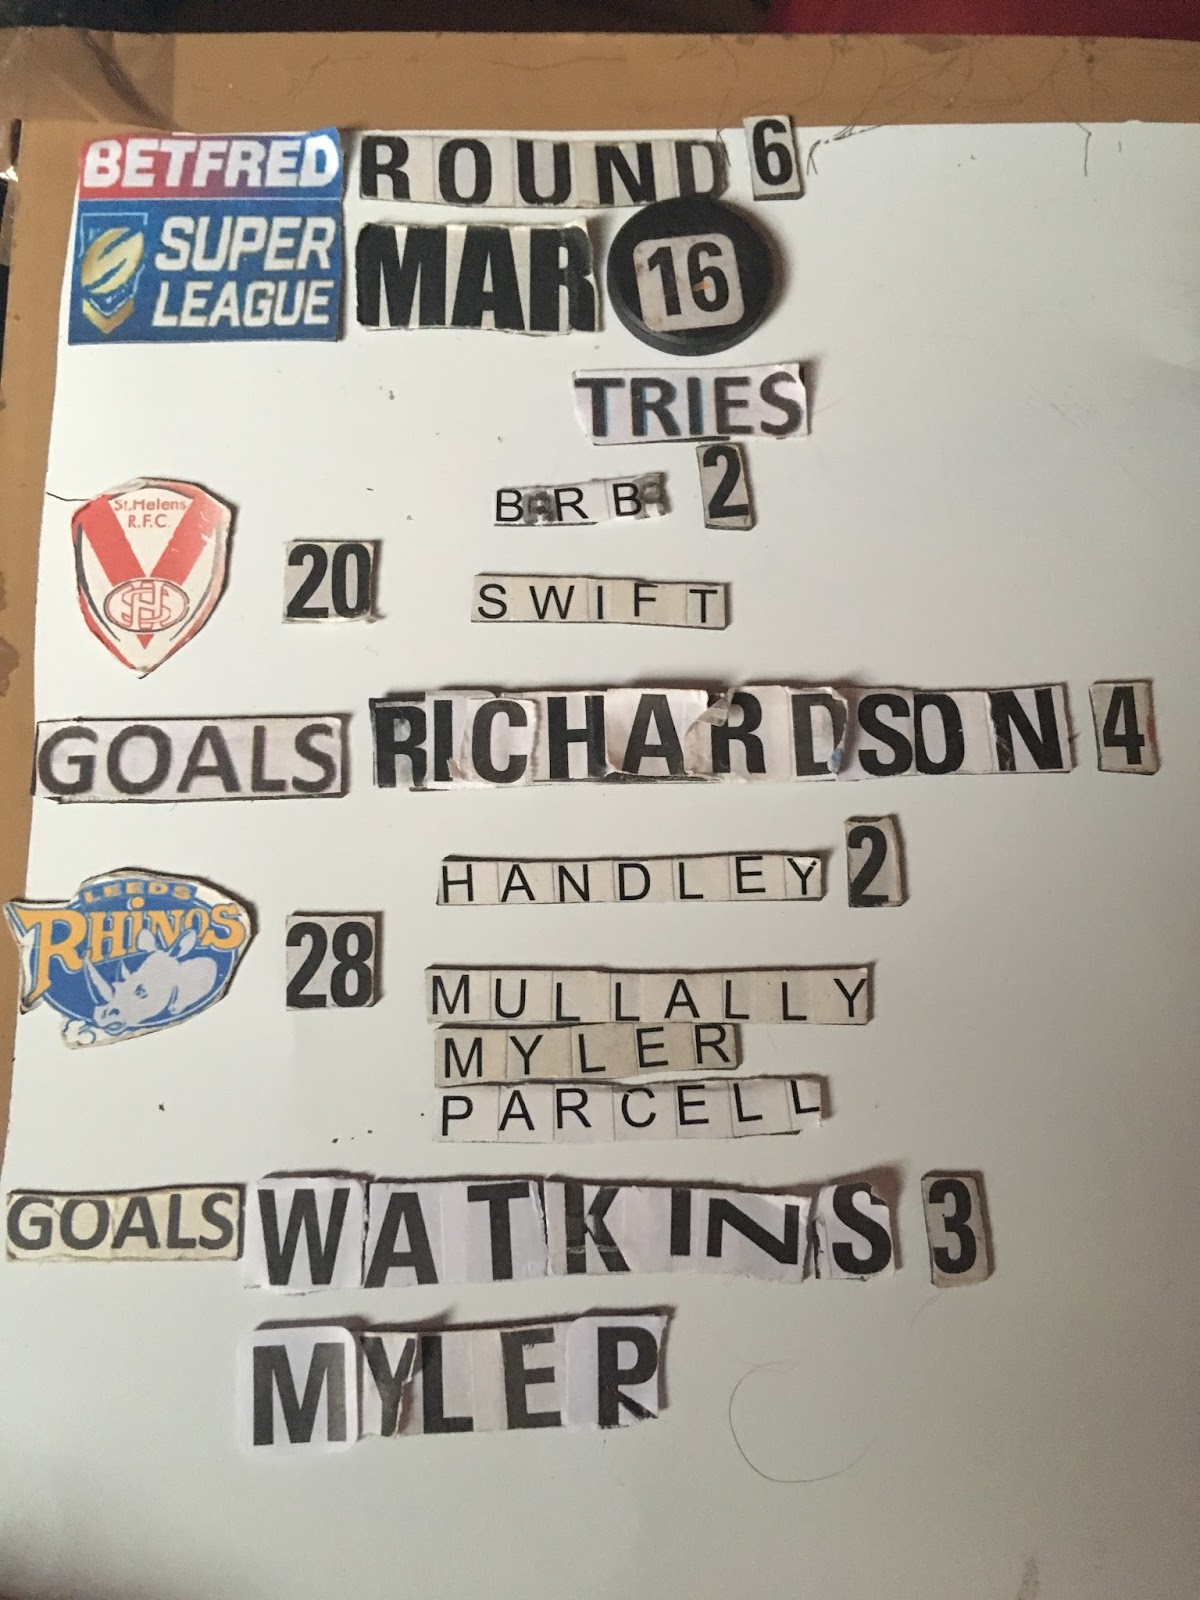 BETFRED ROUND 6
SUPER LEAGUE MAR 16
TRIES
BARBA 2
St.Helens
R.F.C.
20 SWIFT
GOALS RICHARDSON 4
HANDLEY 2
LEEDS
RHINOS
28 MULLALLY
MYLER
PARCELL
GOALS WATKINS 3
MYLER